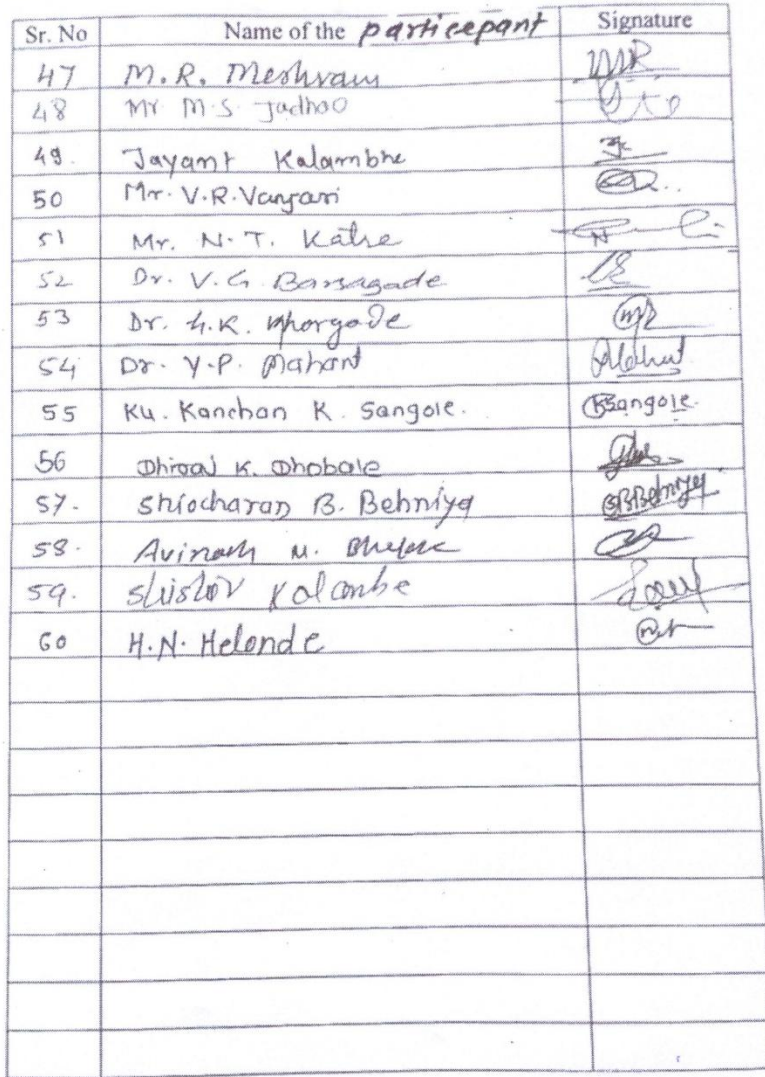 Sr. No Name of the particepant Signature
47 M. R. Meshram
48 Mr M.S. Jadhao
49. Jayant Kalambhe
50 Mr. V.R. Vanjari
51 Mr. N.T. Katre
52 Dr. V.G. Barsagade
53 Dr. G.K.
54 Dr. Y.P. Mahant
55 Ku. Kanchan K. Sangole. KSangole.
56 Dhiraj K. Dhobale
57. Shiocharan B. Behniya SBBehniya
58. Avinash M.
59. Kalambe
60 H.N. Helonde